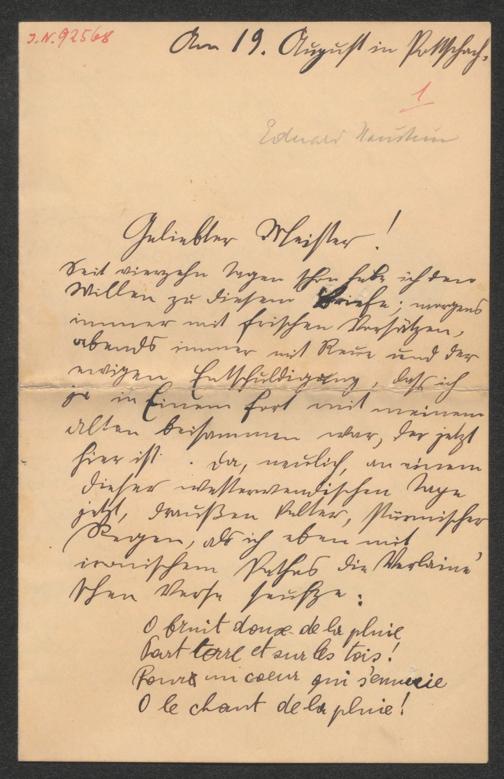 J.N. 92568
Am 19. August in Pottschach.
1
Eduard
Geliebter Meister!
Seit vierzehn Tagen schon habe ich den
Willen zu diesem Briefe; morgens
immer mit frischen Vorsätzen,
abends immer mit Reue und der
ewigen Entschuldigung, dass ich
ja in Einem fort mit meinem
alten beisammen war, der jetzt
hier ist. Da, neulich, an einem
dieser wetterwendischen Tage
jetzt, draußen kalter, stürmischer
Regen, als ich eben mit
ironischem Pathos die Verlaine'
schen Verse seufze:
O bruit doux de la pluie
Part terre et sur les tois!
Pour un coeur qui s'ennuie
O le chant de la pluie!